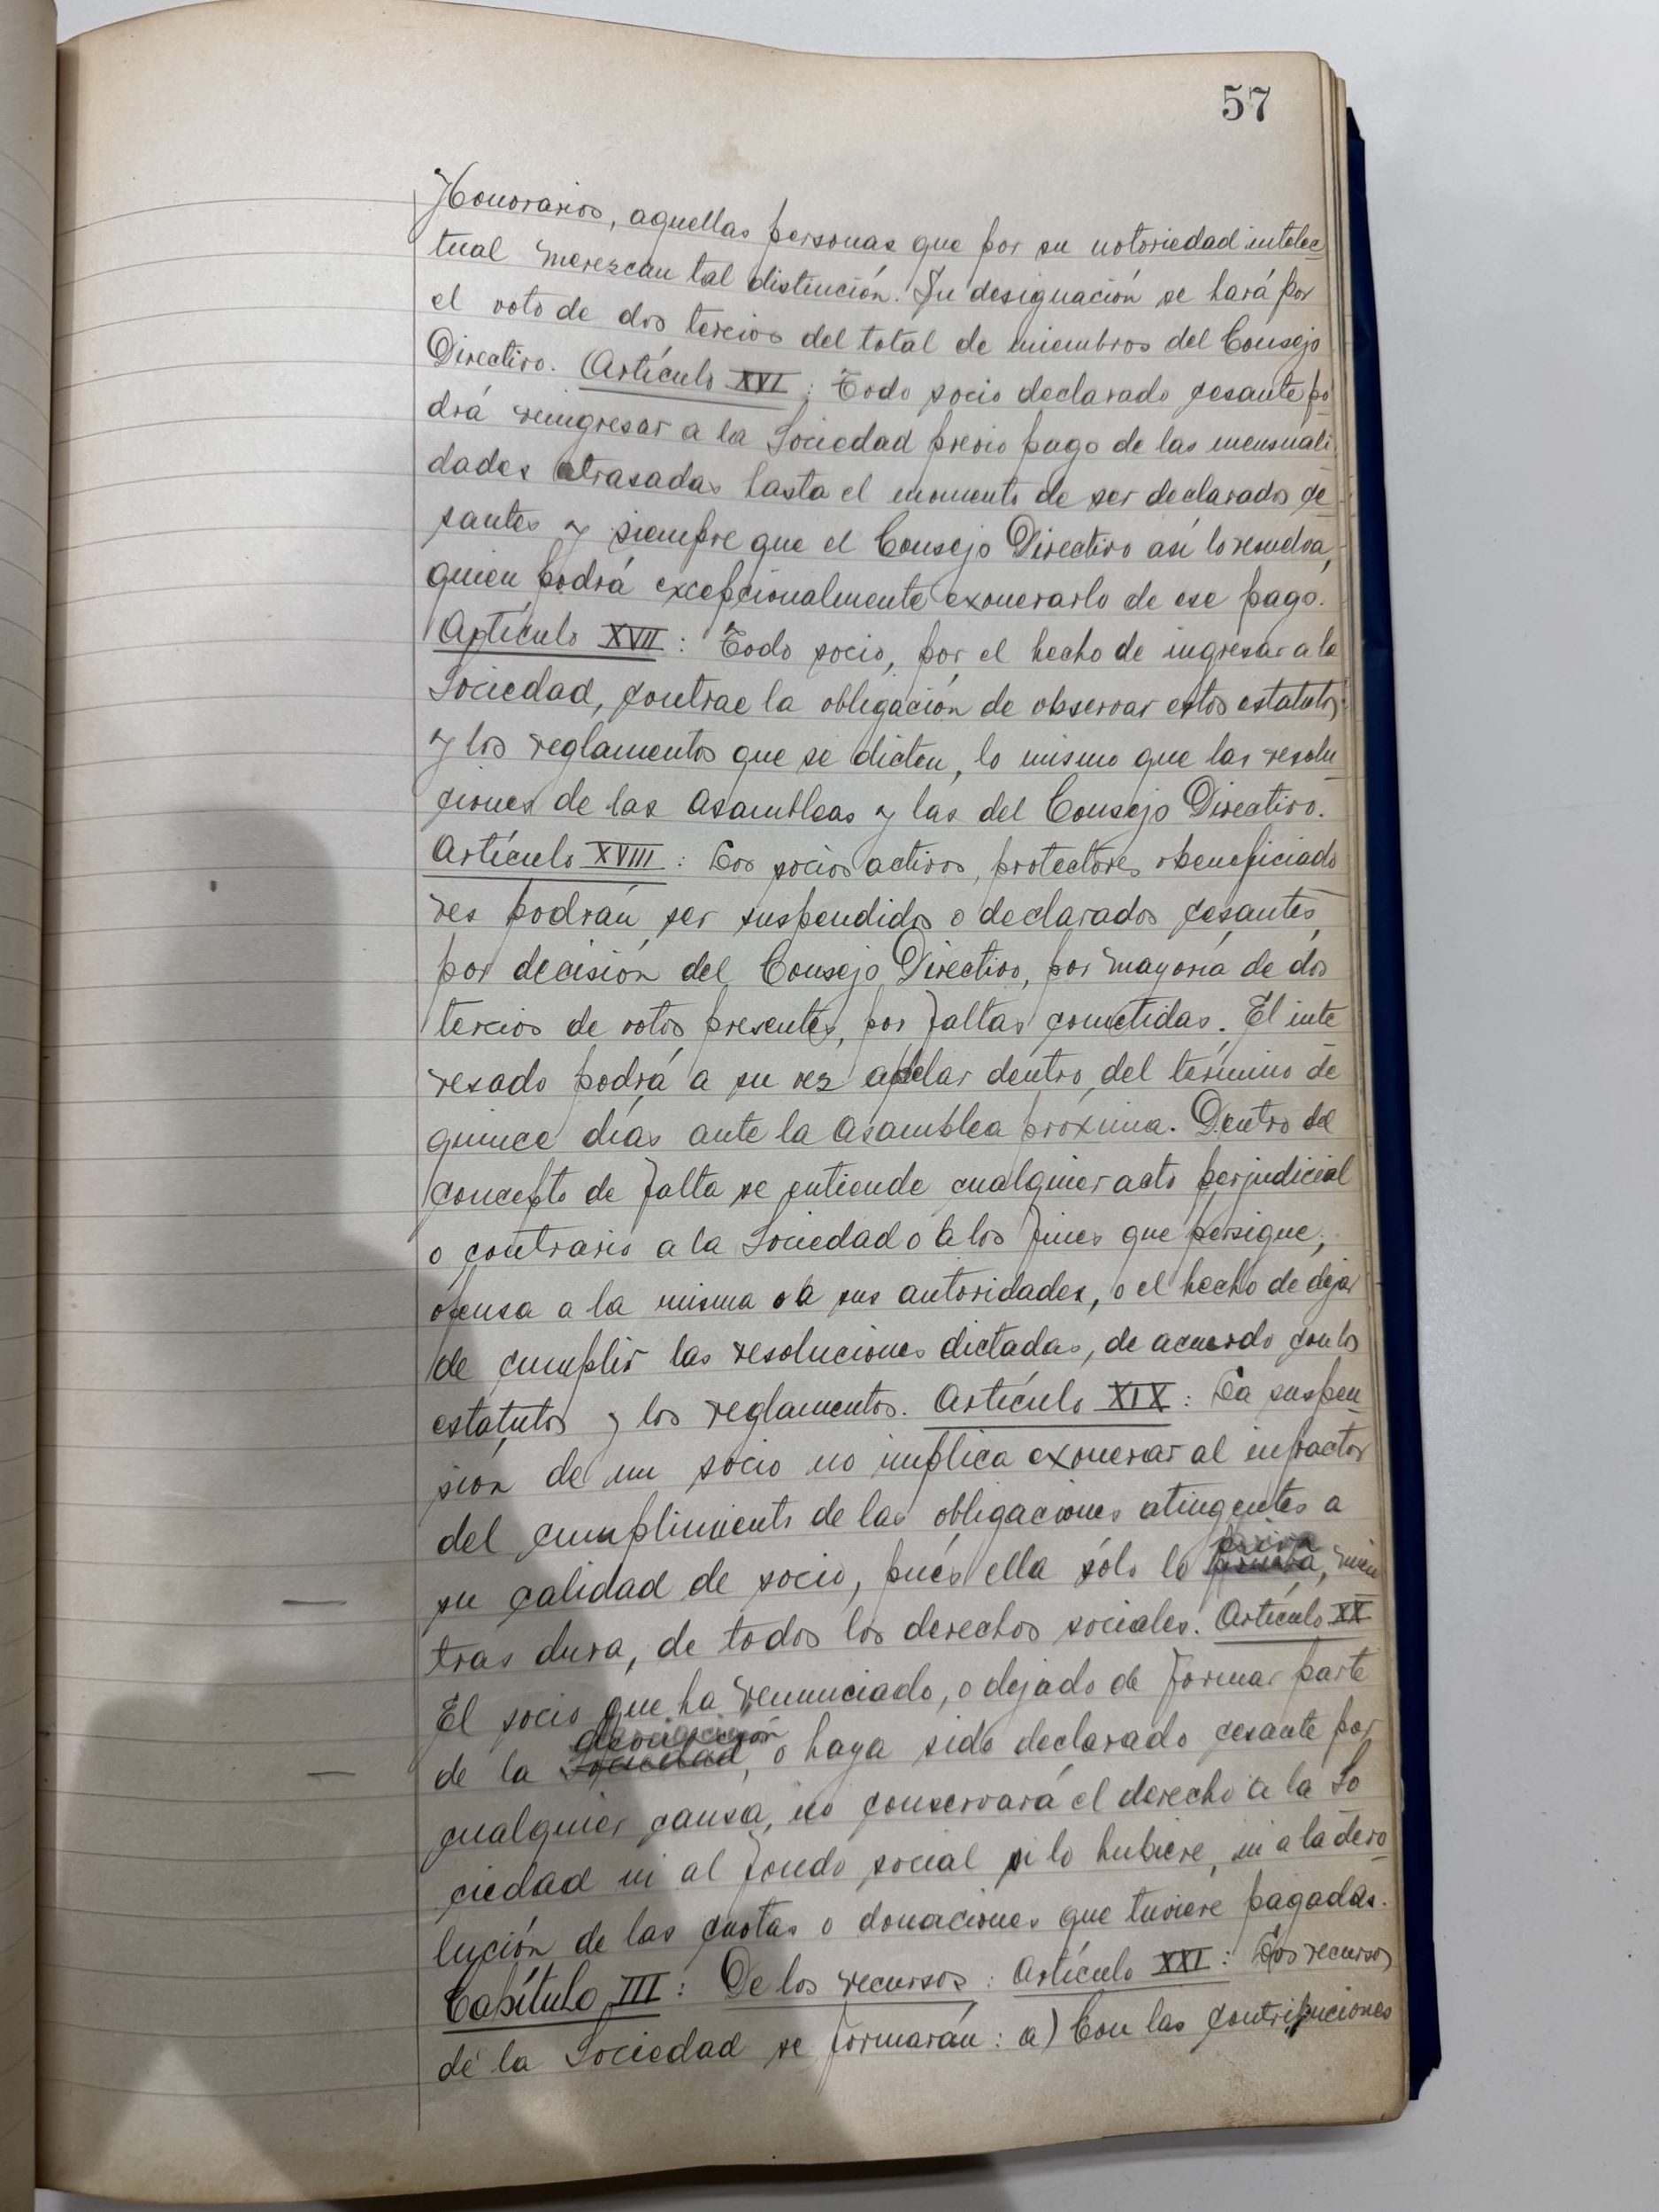 57
Honorarios, aquellas personas que por su notoriedad intelec
tual merezcan tal distinción. Su designación se hará por
el voto de dos tercios del total de miembros del Consejo
Directivo. Artículo XVI: Todo socio declarado cesante po
drá reingresar a la Sociedad previo pago de las mensuali
dades atrasadas hasta el momento de ser declarados ce
santes y siempre que el Consejo Directivo así lo resuelva,
quien podrá excepcionalmente exonerarlo de ese pago.
Artículo XVII: Todo socio, por el hecho de ingresar a la
Sociedad, contrae la obligación de observar estos estatutos
y los reglamentos que se dicten, lo mismo que las resolu
ciones de las Asambleas y las del Consejo Directivo.
Artículo XVIII: Los socios activos, protectores o beneficiado
res podrán ser suspendidos o declarados cesantes,
por decisión del Consejo Directivo, por mayoría de dos
tercios de votos presentes, por faltas cometidas. El inte
resado podrá a su vez apelar dentro del término de
quince días ante la Asamblea próxima. Dentro del
concepto de falta se entiende cualquier acto perjudicial
o contrario a la Sociedad o a los fines que persigue,
ofensa a la misma o a sus autoridades, o el hecho de dejar
de cumplir las resoluciones dictadas, de acuerdo con los
estatutos y los reglamentos. Artículo XIX: La suspen
sión de un socio no implica exonerar al infractor
del cumplimiento de las obligaciones atingentes a
priva
su calidad de socio, pués ella sólo lo, mien
tras dura, de todos los derechos sociales. Artículo XX
El socio que ha renunciado, o dejado de formar parte
asociación
de la Sociedad, o haya sido declarado cesante por
cualquier causa, no conservará el derecho a la So
ciedad ni al fondo social si lo hubiere, ni a la devo
lución de las cuotas o donaciones que tuviere pagadas.
Capítulo III: De los recursos: Artículo XXI: Los recursos
de la Sociedad se formarán: a) Con las contribuciones